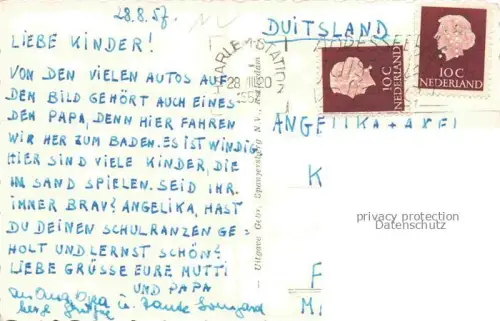 28.8.57.
LIEBE KINDER!
VON DEN VIELEN AUTOS AUF
DEN BILD GEHÖRT AUCH EINES
DEN PAPA, DENN HIER FAHREN
WIR HER ZUM BADEN. ES IST WINDIG
HIER SIND VIELE KINDER, DIE
IM SAND SPIELEN. SEID IHR
IMMER BRAV? ANGELIKA, HAST
DU DEINEN SCHULRANZEN GE-
HOLT UND LERNST SCHÖN?
LIEBE GRÜSSE EURE MUTTI
UND PAPA
An Opa u. Tante
Uitgave Gebr. Spanjersberg N.V., Rotterdam
DUITSLAND
HAARLEM-STATION
28 VIII 20
NEDERLAND
10C
10C
NEDERLAND
ANGELIKA + AXEL
K
F
M
privacy protection
Datenschutz